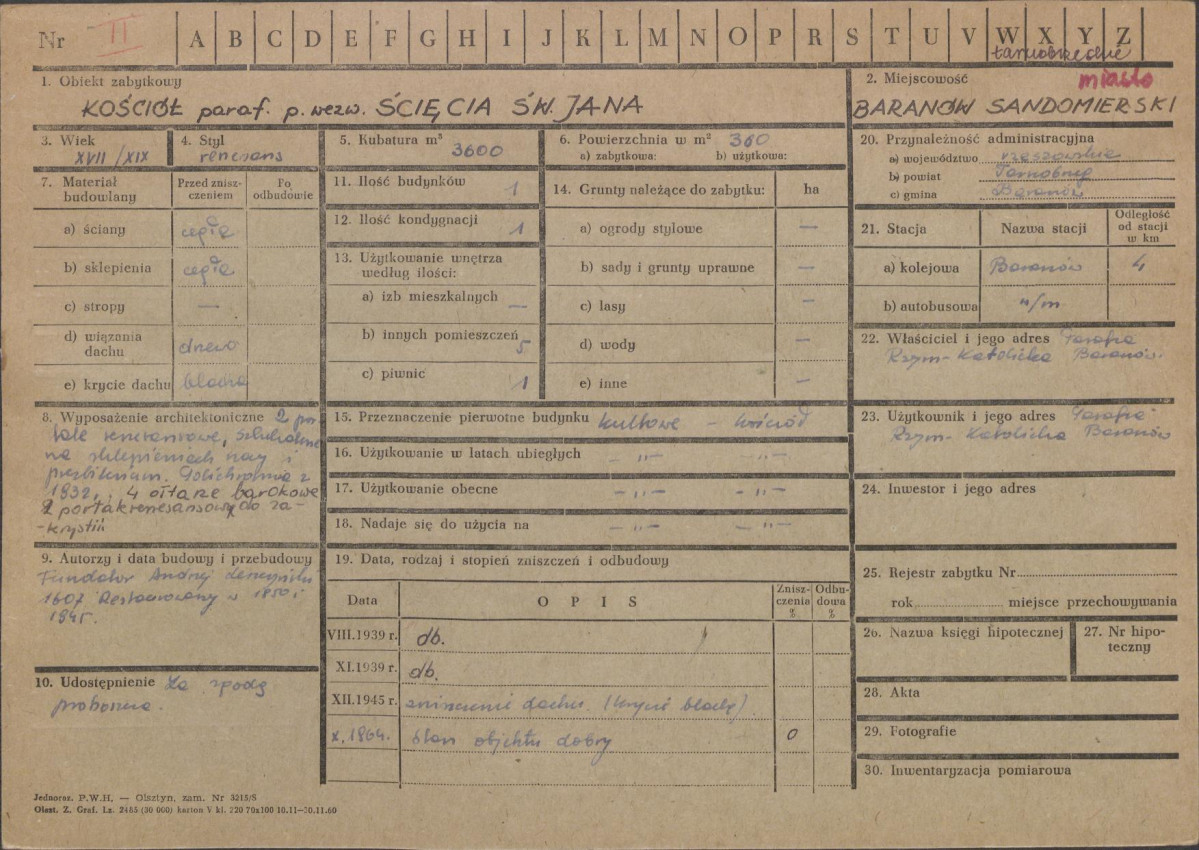 Nr II
A B C D E F G H I J K L M N O P R S T U V W X Y Z
tarnobrzeskie
1. Obiekt zabytkowy
KOŚCIÓŁ paraf. p. wezw. ŚCIĘCIA ŚW. JANA
2. Miejscowość
miasto
BARANÓW SANDOMIERSKI
3. Wiek
XVII/XIX
4. Styl
renesans
5. Kubatura m³ 3600
6. Powierzchnia w m² 360
a) zabytkowa: b) użytkowa:
7. Materiał budowlany
Przed zniszczeniem
Po odbudowie
a) ściany cegła
b) sklepienia cegła
c) stropy —
d) wiązania dachu drewo
e) krycie dachu blacha
8. Wyposażenie architektoniczne 2 por-
tale renesansowe, sztukaterie
na sklepieniach nawy i
prezbiterium. Polichromia z
1832 r., 4 ołtarze barokowe
2 portale renesansowe do za-
-krystii
9. Autorzy i data budowy i przebudowy
Fundator Andrzej Leszczyński
1607 Restaurowany w 1850 i
1945.
10. Udostępnienie Za zgodą
proboszcza.
11. Ilość budynków 1
12. Ilość kondygnacji 1
13. Użytkowanie wnętrza według ilości:
a) izb mieszkalnych —
b) innych pomieszczeń 5
c) piwnic 1
14. Grunty należące do zabytku: ha
a) ogrody stylowe —
b) sady i grunty uprawne —
c) lasy —
d) wody —
e) inne —
15. Przeznaczenie pierwotne budynku kultowe - kościół
16. Użytkowanie w latach ubiegłych - " - - " -
17. Użytkowanie obecne - " - - " -
18. Nadaje się do użycia na - " - - " -
19. Data, rodzaj i stopień zniszczeń i odbudowy
Data
OPIS
Zniszczenia %
Odbudowa %
VIII.1939 r. db.
XI.1939 r. db.
XII.1945 r. zniszczenie dachu (krycie blachy).
X. 1964. Stan objektu dobry 0
20. Przynależność administracyjna
a) województwo rzeszowskie
b) powiat Tarnobrzeg
c) gmina Baranów
21. Stacja
Nazwa stacji
Odległość od stacji w km
a) kolejowa Baranów 4
b) autobusowa "/m
22. Właściciel i jego adres Parafia
Rzym-Katolicka Baranów.
23. Użytkownik i jego adres Parafia
Rzym-Katolicka Baranów
24. Inwestor i jego adres
25. Rejestr zabytku Nr
rok miejsce przechowywania
26. Nazwa księgi hipotecznej
27. Nr hipoteczny
28. Akta
29. Fotografie
30. Inwentaryzacja pomiarowa
Jednoraz. P.W.H. — Olsztyn, zam. Nr 3215/S
Olszt. Z. Graf. Lz. 2485 (30 000) karton V kl. 220 70x100 10.11—30.11.60